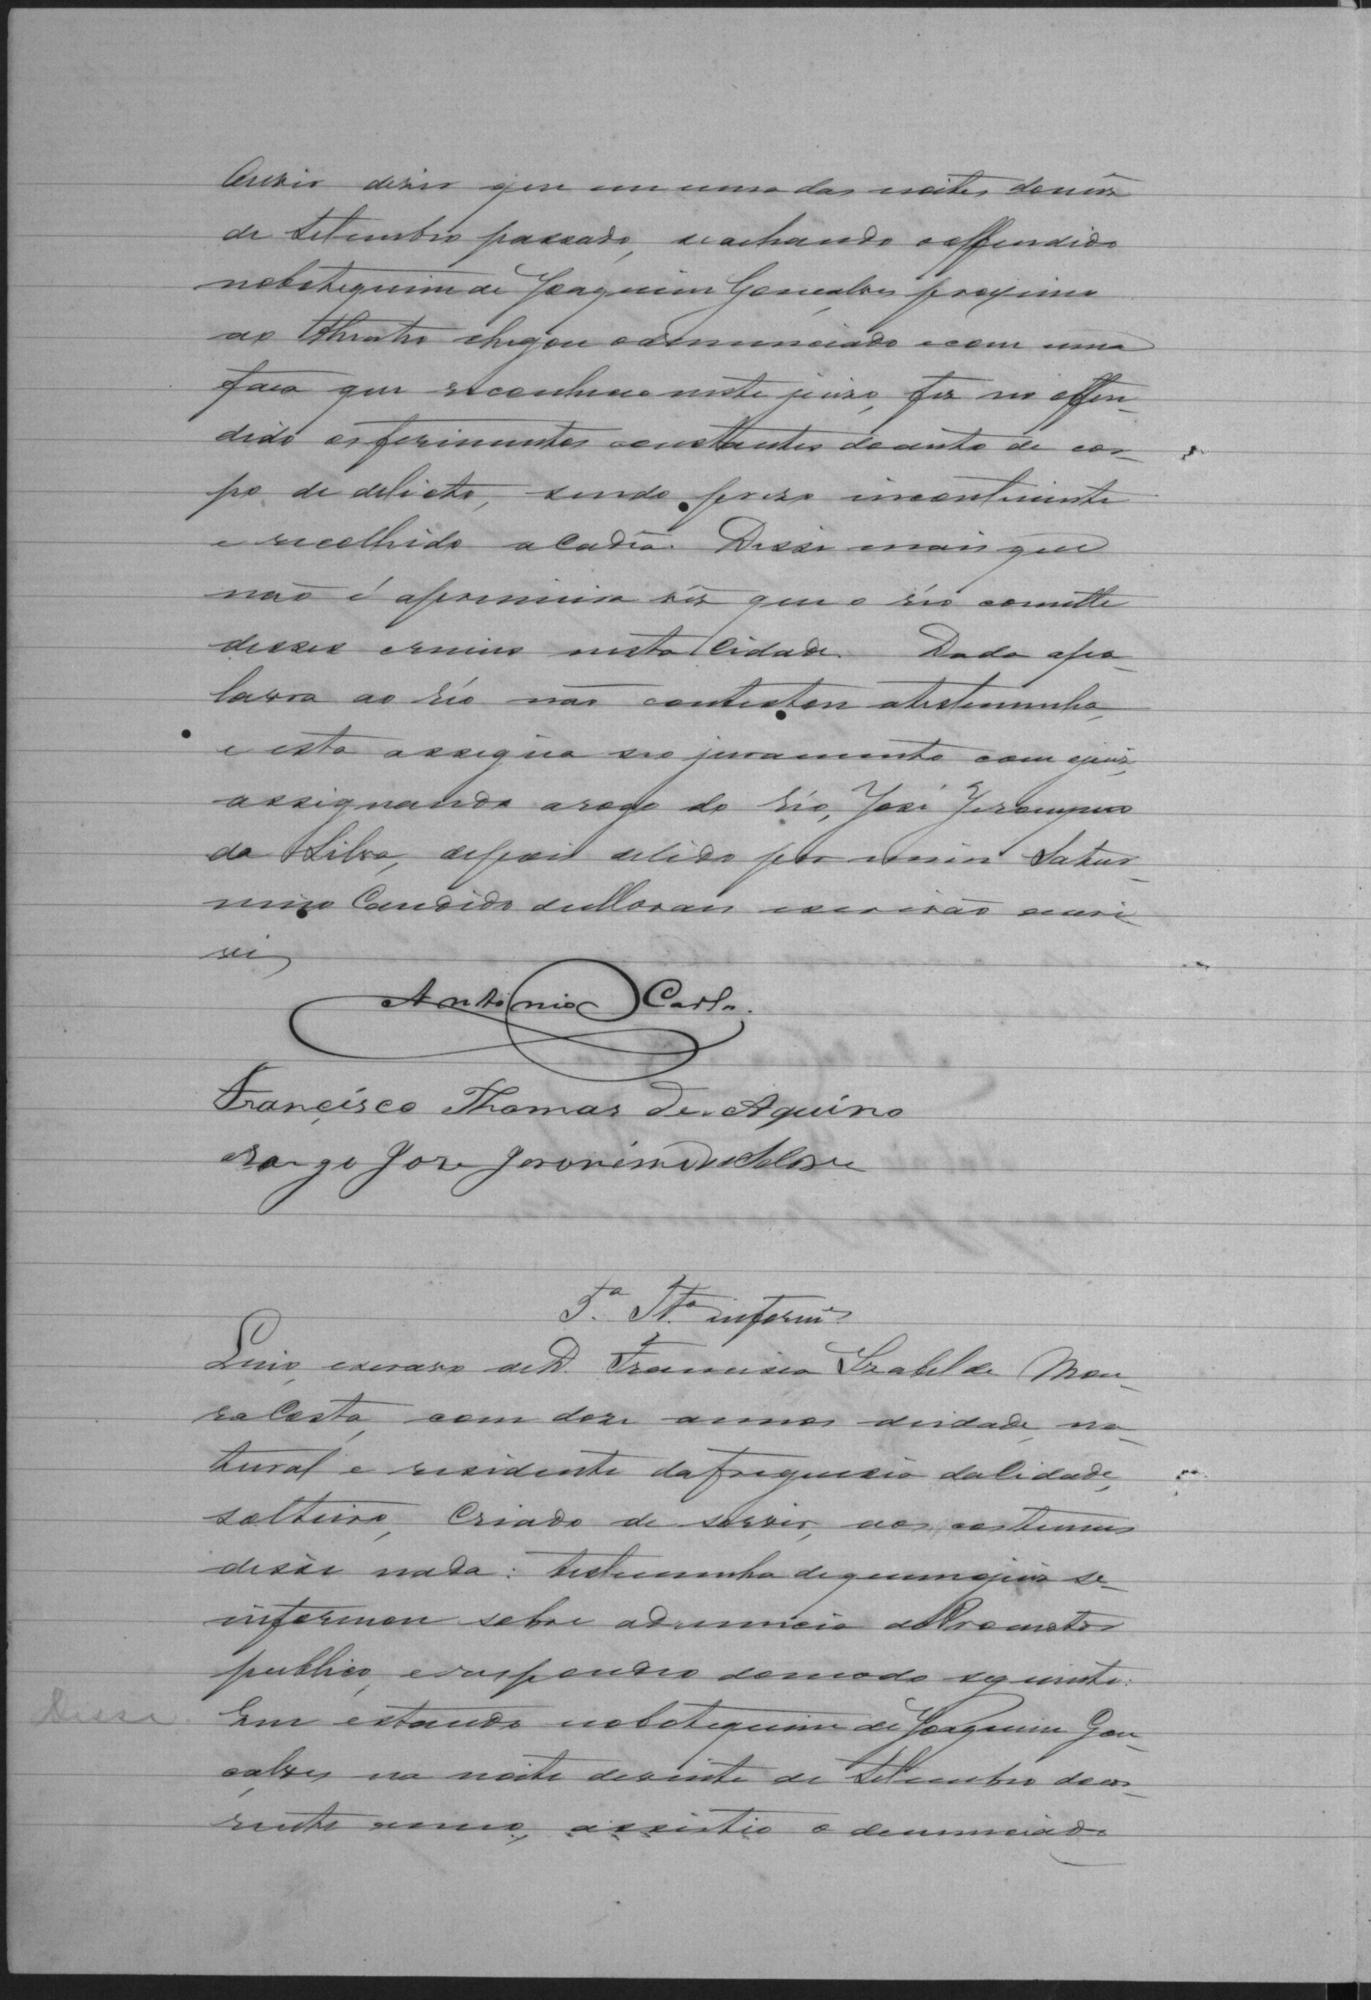 ouvir diser que em uma das noites do mêz
de Setembro passado, se achando o offendido
no botequim de Joaquim Gonçalves proximo
ao Theatro chegou o denunciado e com uma
faca que reconheceo neste juizo, fez no offen-
dido os ferimentos constantes do auto de cor-
po de delicto, sendo prezo incontinente
e recolhido a Cadêa. Disse mais que
não é a primeira vêz que o réo comette
desses crimes nesta Cidade. Dada a pa-
lavra ao réo não contestou a testemunha,
e esta assigna seo juramento com o juiz,
assignando a rogo do réo, José Jeronymo
da Silva, depois de lido por mim Satur-
nino Candido de Moraes escrivão escri
vi,
Antonio Carlo.
Francisco Thomas de Aquino
a rogo Jose Jeronimo da Silva
5.ª Tt.ª informe
Lino, escravo de D. Francisca Izabel de Mou-
ra Costa, com dose annos de idade, na-
tural e residente da freguesia da Cidade,
solteiro, Criado de servir, aos costumes
disse nada: testemunha de quem o juiz se
informou sobre a denuncia do Promotor
publico, e respondeo do modo seguinte:
Disse
Em estando no botequim de Joaquim Gon-
çalves na noite de vinte de Setembro do cor-
rente anno, assistio o denunciado